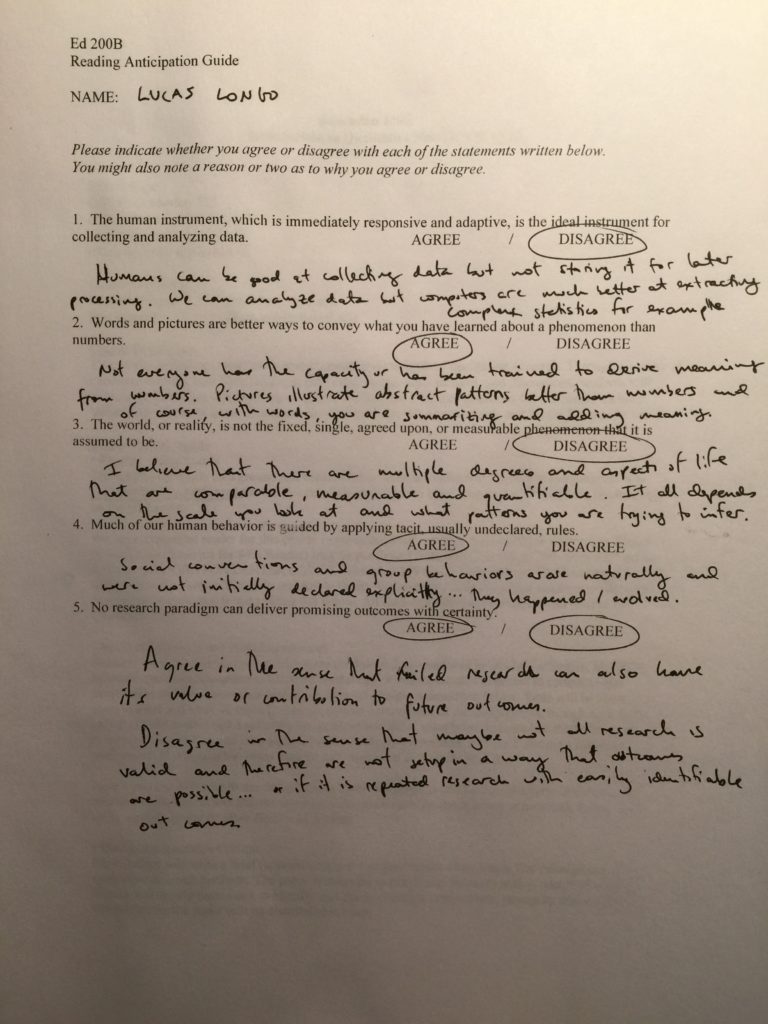 Ed 200B
Reading Anticipation Guide
NAME: LUCAS LONGO
Please indicate whether you agree or disagree with each of the statements written below.
You might also note a reason or two as to why you agree or disagree.
1. The human instrument, which is immediately responsive and adaptive, is the ideal instrument for
collecting and analyzing data. AGREE / DISAGREE
Humans can be good at collecting data but not storing it for later
processing. We can analyze data but computers are much better at extracting
complex statistics for example
2. Words and pictures are better ways to convey what you have learned about a phenomenon than
numbers. AGREE / DISAGREE
Not everyone has the capacity or has been trained to derive meaning
from numbers. Pictures illustrate abstract patterns better than numbers and
of course, with words, you are summarizing and adding meaning.
3. The world, or reality, is not the fixed, single, agreed upon, or measurable phenomenon that it is
assumed to be. AGREE / DISAGREE
I believe that there are multiple degrees and aspects of life
that are comparable, measurable and quantifiable. It all depends
on the scale you look at and what patterns you are trying to infer.
4. Much of our human behavior is guided by applying tacit, usually undeclared, rules.
AGREE / DISAGREE
Social conventions and group behaviors arose naturally and
were not initially declared explicitly... They happened / evolved.
5. No research paradigm can deliver promising outcomes with certainty.
AGREE / DISAGREE
Agree in the sense that failed research can also have
its value or contribution to future outcomes.
Disagree in the sense that maybe not all research is
valid and therefore are not setup in a way that outcomes
are possible... or if it is repeated research with easily identifiable
out comes